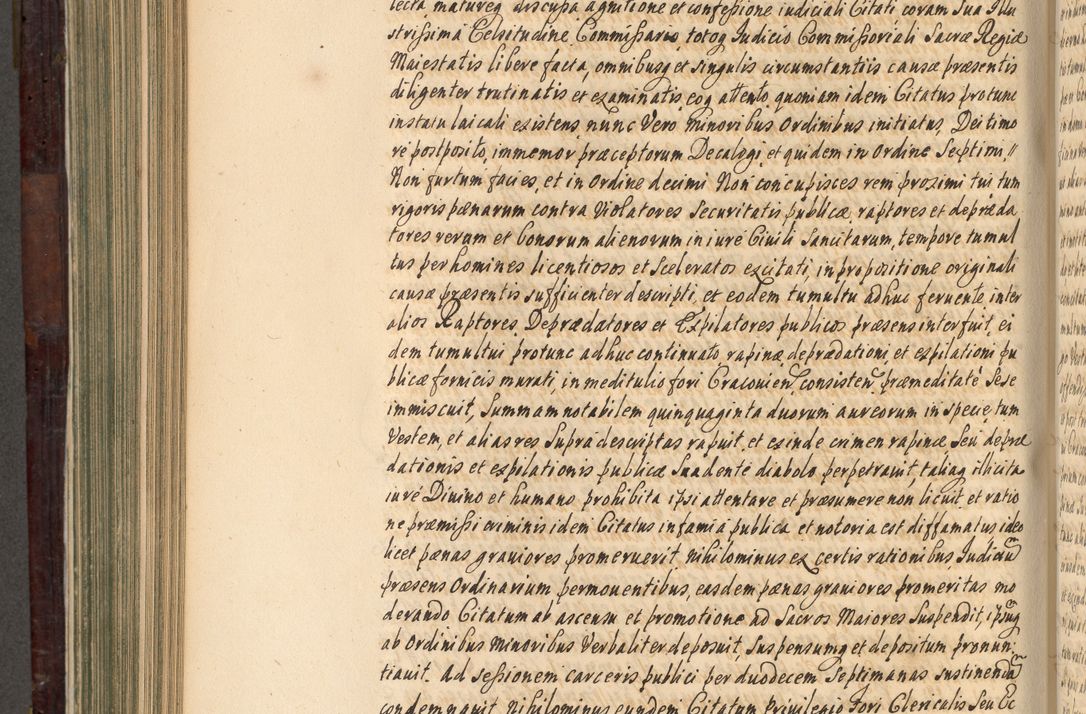 lecta matureq discussa agnitione et confessione iudiciali Citati coram Sua Illu
strissima Celsitudine Commissario, totoq Iudicio Commissoriali Sacræ Regiæ
Maiestatis libere facta, omnibusq et singulis circumstantiis causæ præsentis
diligenter trutinatis et examinatis, eoq attento, quoniam idem Citatus protunc
in statu laicali existens, nunc Vero Minoribus Ordinibus initiatus, Dei timo
re postposito, immemor præceptorum Decalogi, et quidem in Ordine Septimi //
Non furtum facies, et in Ordine decimi Non concupisces rem proximi tui tum
rigoris pænarum contra Violatores Securitatis publicæ, raptores et depræda
tores rerum et bonorum alienorum in iuré Ciuili Sancitarum, tempore tumul
tus per homines licentiosos et Sceleratos excitati, in propositione originali
causæ præsentis sufficienter descripti, et eodem tumultu adhuc feruente, inter
alios Raptores, Deprædatores et Expilatores publicos præsens interfuit, ei
dem tumultui protunc adhuc continuato rapinæ, deprædationi, et expilationi pu
blicæ fornicis murati, in meditulio fori Cracouien, consisten, præmeditaté Sese
immiscuit, Summam notabilem quinquaginta duorum aureorum in specie, tum
Vestem, et alias res Supra descriptas rapuit, et exinde crimen rapinæ Seu depræ
dationis et expilationis publicæ Suadenté diabolo perpetrauit, taliaq illicita
iuré Diuino et humano prohibita ipsi attentare et præsumere non licuit, et ratio
ne præmissi criminis idem Citatus infamia publica et notoria est diffamatus, ideo
licet pænas grauiores promeruerit, Nihilominus ex certis rationibus, Iudicium
præsens Ordinarium permouentibus, easdem pænas grauiores promeritas mo
derando Citatum ab ascensu et promotione ad Sacros Maiores Suspendit, ipsumq
ab Ordinibus Minoribus Verbaliter deposuit, Suspensumq et depositum pronun
tiauit. Ad sessionem carceris publici per duodecem Septimanas sustinendam
condemnauit, Nihilominus eundem Citatum Priuilegio Fori Clericalis Seu Ec